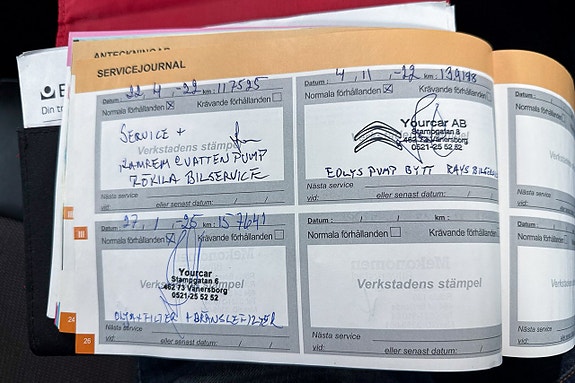 ANTECKNINGAR
SERVICEJOURNAL
Datum: 22, 4, -22 km: 117525
Normala förhållanden ☒ Krävande förhållanden ☐
SERVICE +
Verkstadens stämpel
KAMREM & VATTENPUMP
BILSERVICE
Nästa service
vid: eller senast datum: / /
Datum: 4, 11, -22 km:
Normala förhållanden ☒ Krävande förhållanden
Yourcar AB
Stampgatan 8
462 73 Vänersborg
0521-25 52 52
EOLYS PUMP BYTT
Nästa service
vid: eller senast datum: / /
27, 1, -25 km: 157641
Normala förhållanden ☒ Krävande förhållanden ☐
Yourcar
Stampgatan 6
462 73 Vänersborg
0521-25 52 52
OLJA+FILTER + BRÄNSLEFILTER
Nästa service
vid: eller senast datum: / /
Datum: / / km:
Normala förhållanden ☐ Krävande förhållanden ☐
Verkstadens stämpel
Nästa service
vid: eller senast datum: / /
Din
24
26
Datum
Normala
Nästa service
vid:
Datum:
Normala
Nästa service
vid: